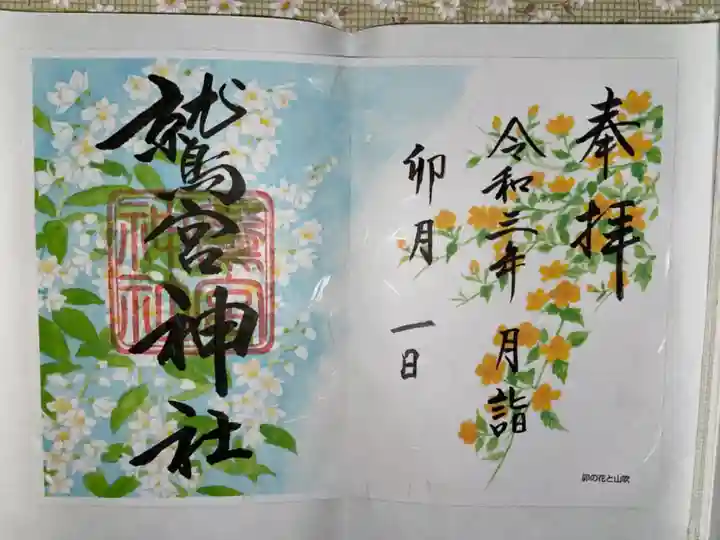 奉拝
令和三年 月詣
卯月 一日
鷲宮神社
鷲宮神社
卯の花と山吹